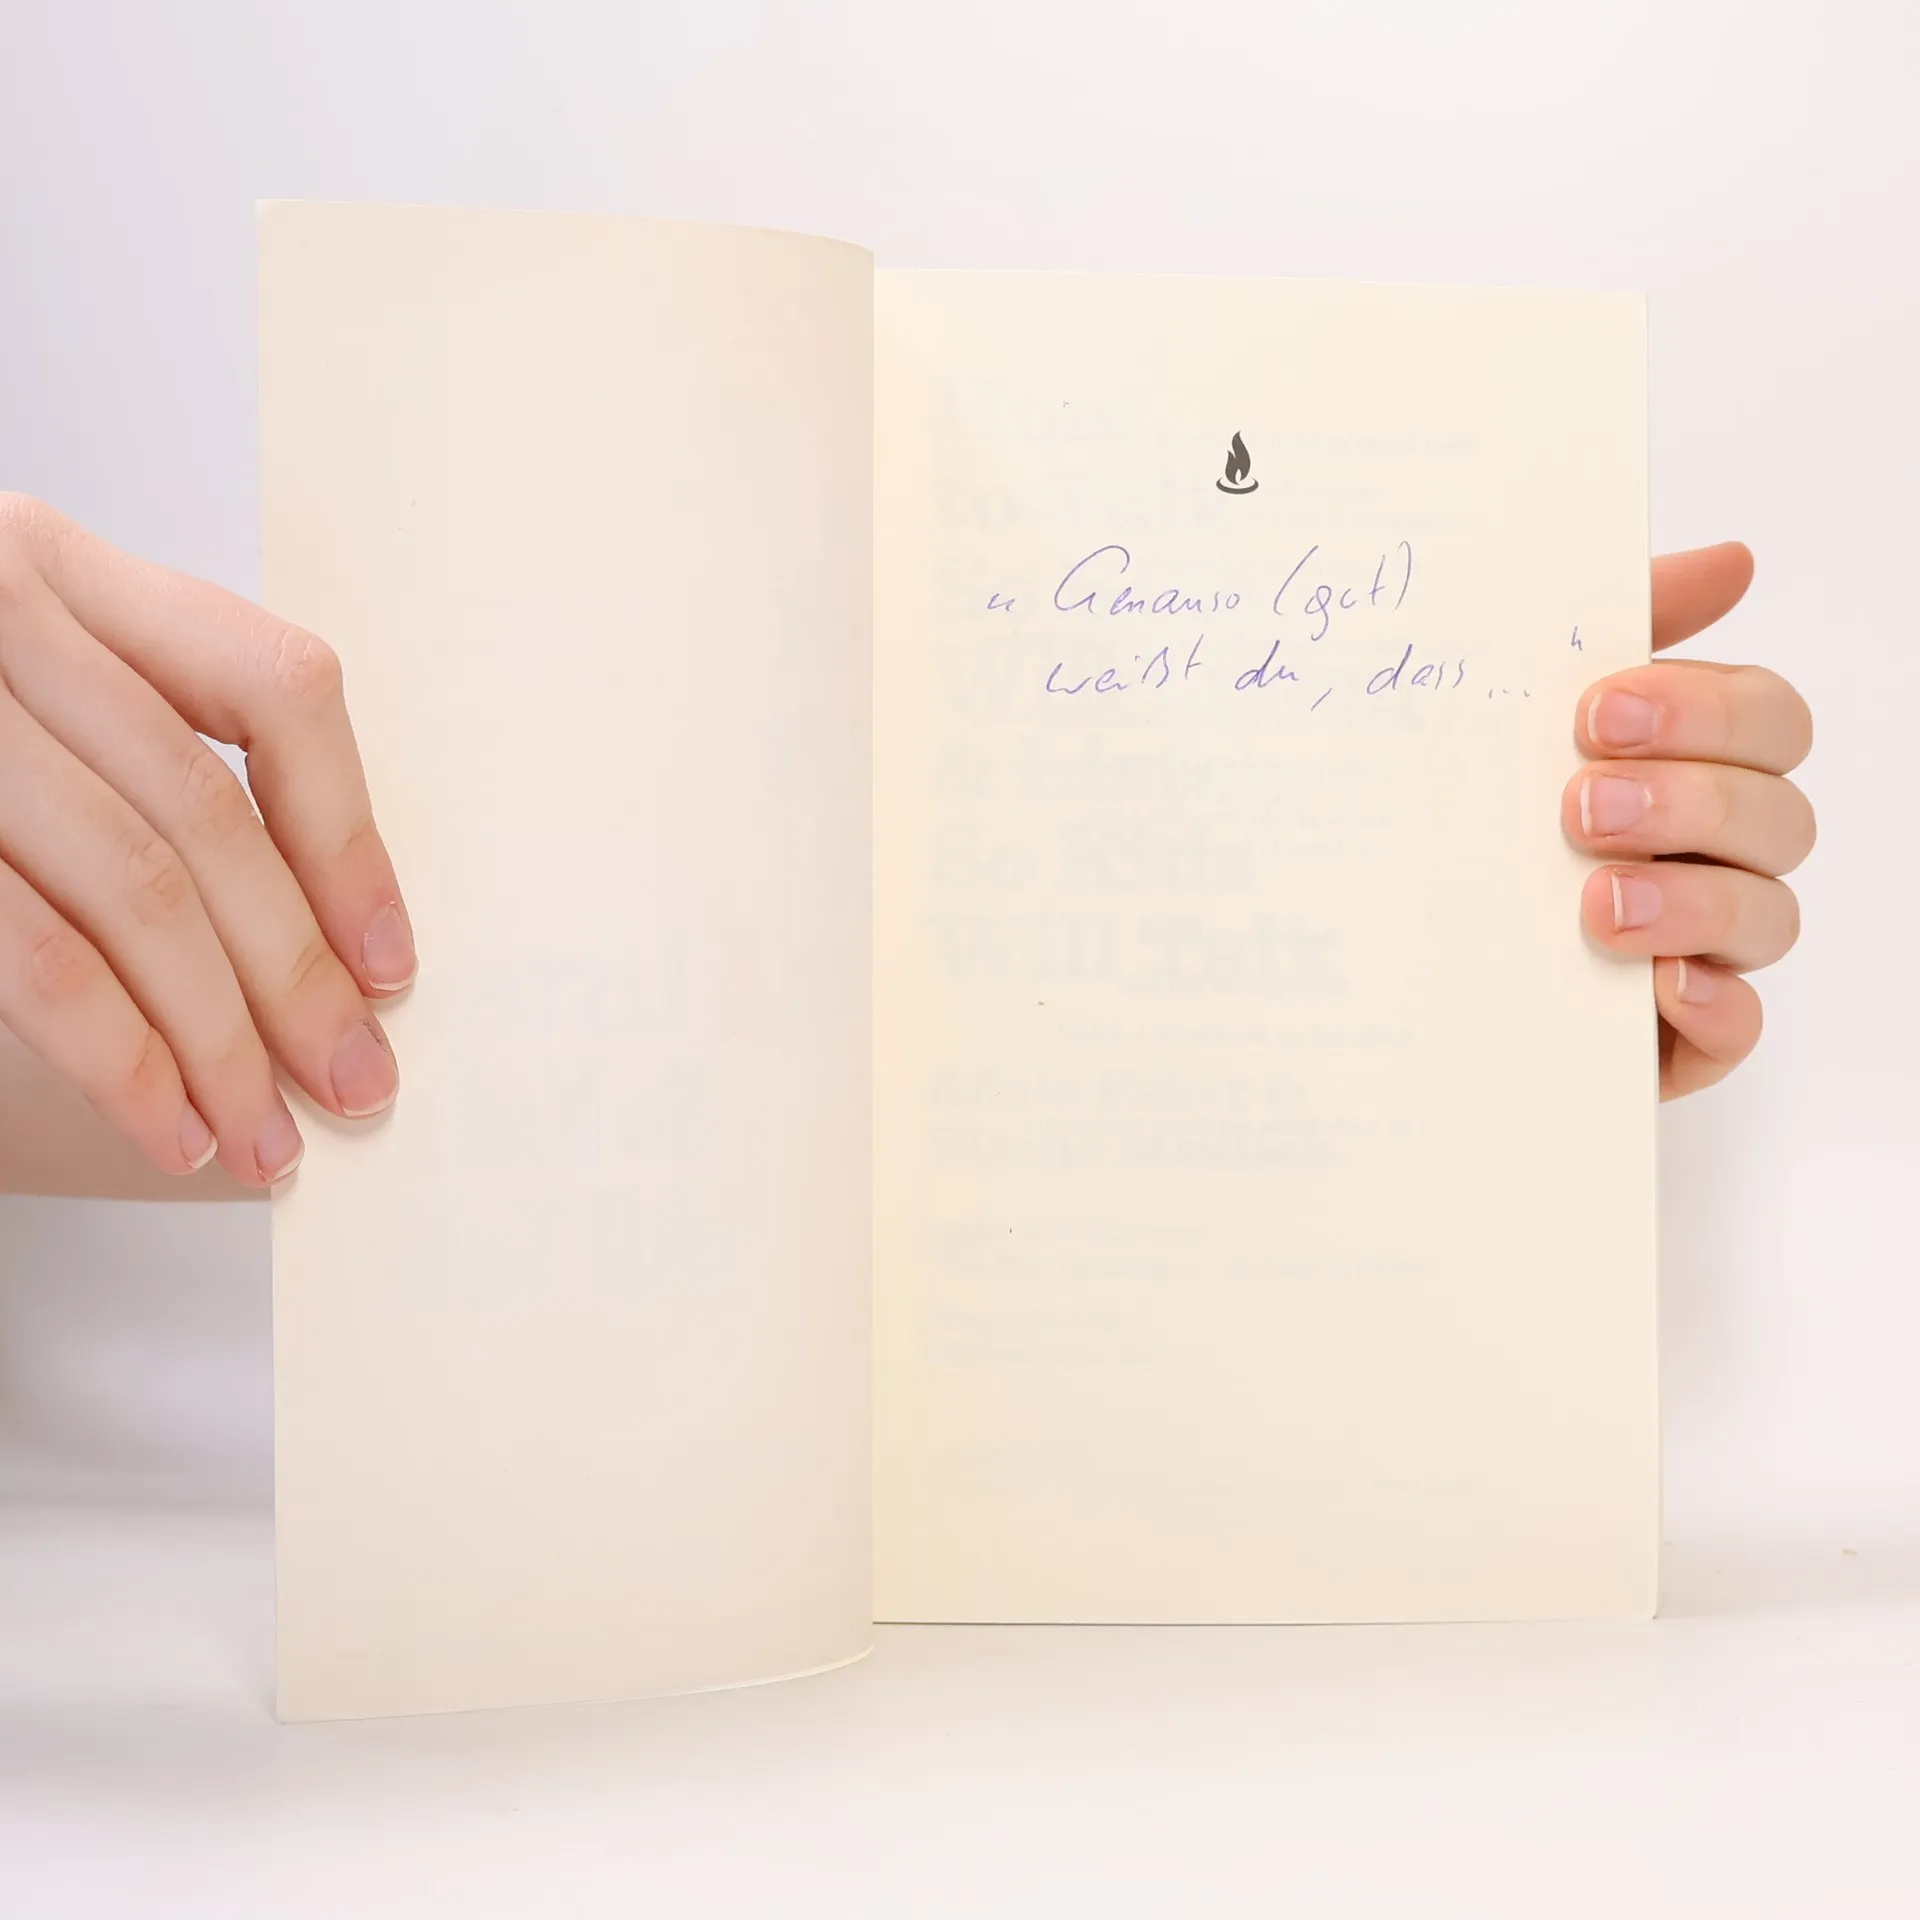 „Genauso (gut)
weißt du, dass ..."